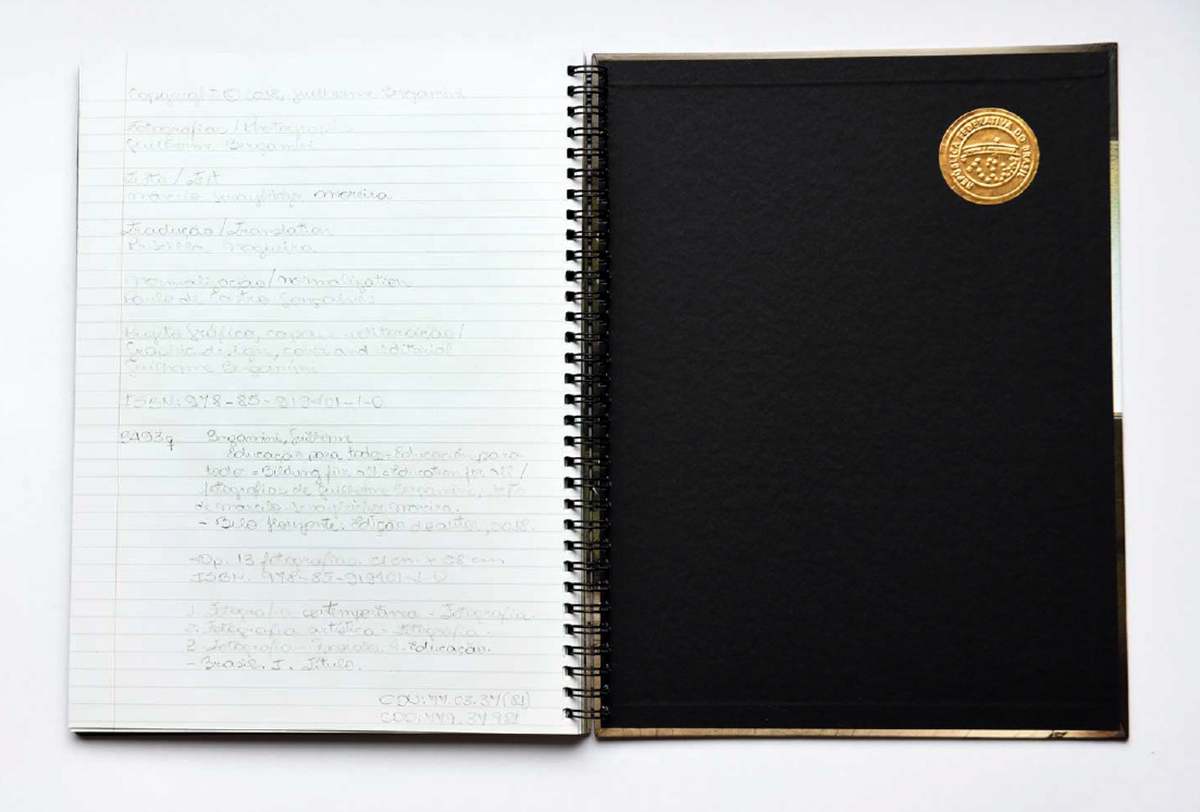 Copyright © 2018, Guilherme Bergamini
Fotografias / Photographs
Guilherme Bergamini
Texto / Text
Moreira
Tradução / Translation
Priscilla Nogueira
Normalização / normalization
Paulo de Castro Gonçalves
Projeto Gráfico, capa e editoração /
Graphic design, cover and editorial
Guilherme Bergamini
ISBN: 978-85-919401-1-0
Bergamini, Guilherme
Educação para todos = Educación para
todos = Bildung für all = Education for all /
fotografias de Guilherme Bergamini,
de Moreira.
- Belo Horizonte: Edição do autor, 2018.
40p. 13 fotografias. 21 cm x 28 cm
ISBN: 978-85-919401-1-0
1. Fotografia contemporânea - Fotografia.
2. Fotografia artística - Fotografia.
Educação.
- Brasil. I. Título.
CDU: 77.03.37(81)
CDD: 779.37981
REPÚBLICA FEDERATIVA DO BRASIL